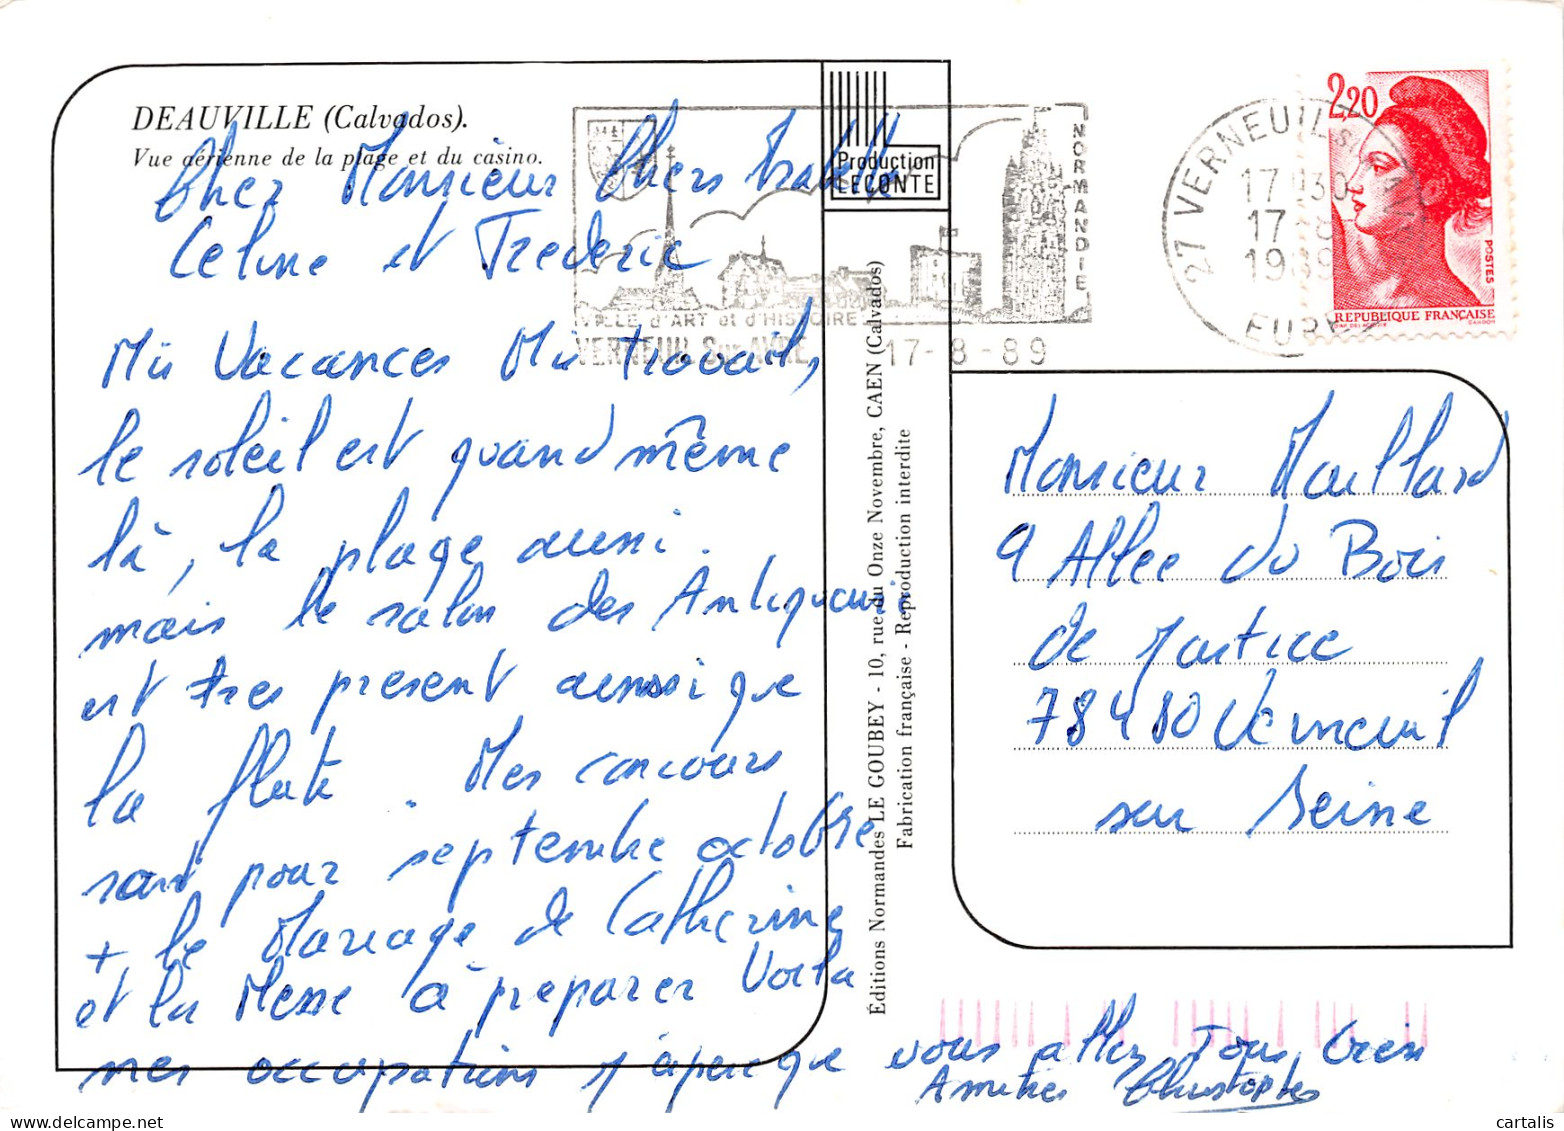 DEAUVILLE (Calvados).
Vue aérienne de la plage et du casino.
Cher Monsieur Chers Isabelle
Celine et Frederic
Mi Vacances Mi travail,
le soleil est quand même
là, la plage aussi.
mais le salon des Antiquaires
est tres present aussi que
la flute. Mes concours
sont pour septembre octobre
+ le Mariage de Catherine
et la Messe à preparer Voila
mes occupations j'espere que vous allez Tous bien
Amities Christophe
Production
LECONTE
Éditions Normandes LE GOUBEY - 10, rue du Onze Novembre, CAEN (Calvados)
Fabrication française - Reproduction interdite
NORMANDIE
VILLE d'ART et d'HISTOIRE
VERNEUIL Sur AVRE
17-8-89
27 VERNEUIL S/ AVRE
17 H30
17-8
1989
EURE
2,20
POSTES
REPUBLIQUE FRANÇAISE
Monsieur Maillard
9 Allee du Bois
de Justice
78480 Verneuil
sur Seine
cartalis